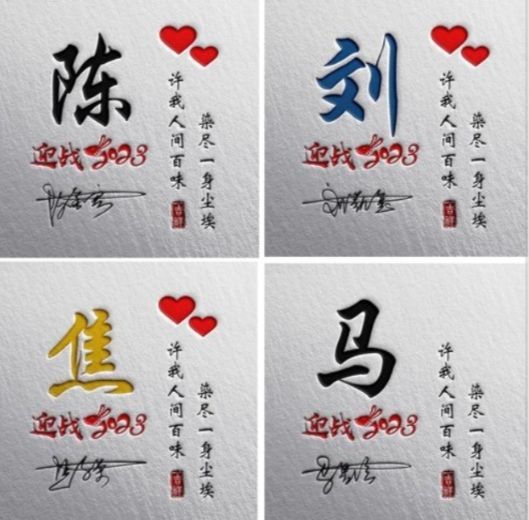 陈
迎战2023
许我人间百味
染尽一身尘埃
刘
迎战2023
许我人间百味
染尽一身尘埃
焦
迎战2023
许我人间百味
染尽一身尘埃
马
迎战2023
许我人间百味
染尽一身尘埃